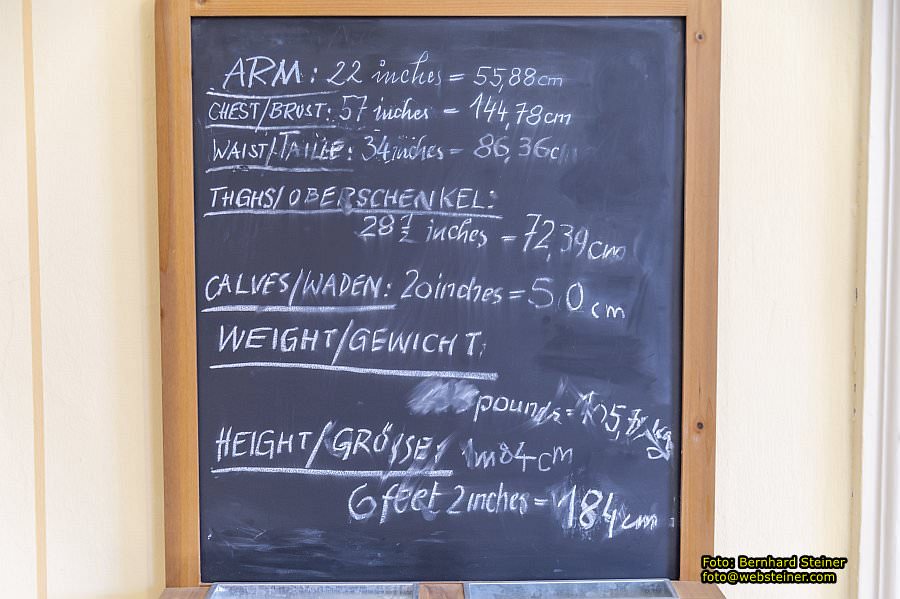 ARM: 22 inches = 55,88cm
CHEST/BRUST: 57 inches = 144,78cm
WAIST/TAILLE: 34 inches = 86,36c
THGHS/OBERSCHENKEL:
28 1/2 inches = 72,39cm
CALVES/WADEN: 20inches = 5,0 cm
WEIGHT/GEWICHT:
pounds =
HEIGHT/GRÖSSE:
1m84cm
6 feet 2 inches = 184cm
Foto: Bernhard Steiner
foto@websteiner.com